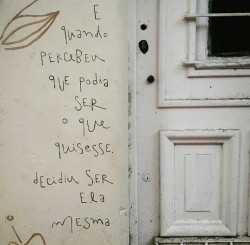 E
quando
PERCEBEU
que podia
SER
o que
quisesse,
decidiu SER
Ela
mesma.